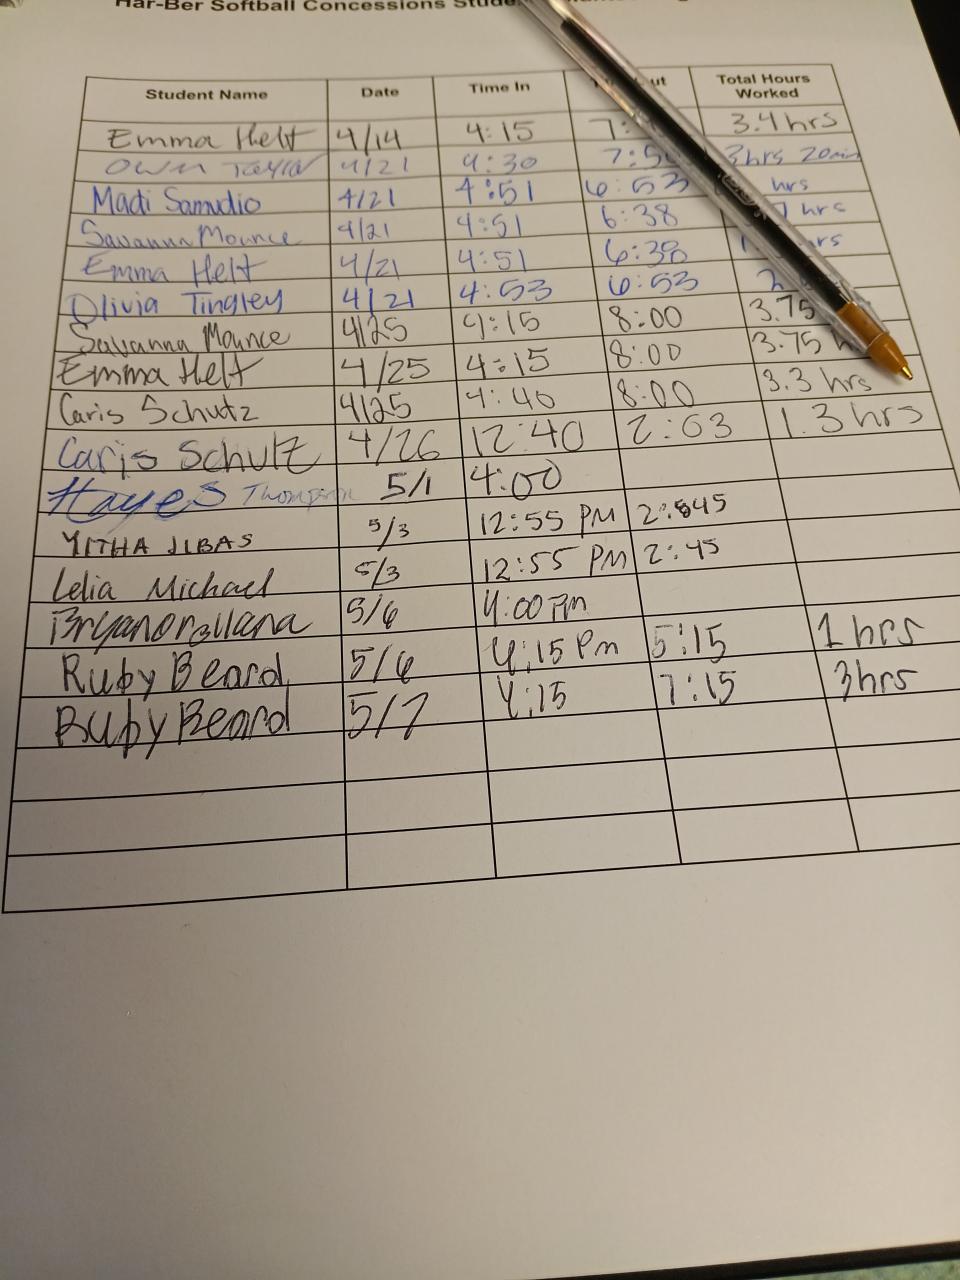 Har-Ber Softball Concessions
Student Name Date Time In Total Hours Worked
Emma Helt 4/14 4:15 3.4 hrs
Owen Taylor 4/21 4:30 3hrs 20min
Madi Samudio 4/21 4:51 6:53 hrs
Savanna Mounce 4/21 4:51 6:38 hrs
Emma Helt 4/21 4:51 6:38
Olivia Tingley 4/21 4:53 6:53 2
Savanna Mounce 4/25 4:15 8:00 3.75
Emma Helt 4/25 4:15 8:00 3.75
Caris Schutz 4/25 4:40 8:00 3.3 hrs
Caris Schutz 4/26 12:40 2:03 1.3 hrs
Hayes Thompson 5/1 4:00
YITHA JIBAS 5/3 12:55 PM 2:45
Lelia Michael 5/3 12:55 PM 2:45
Bryan Orellana 5/6 4:00 Pm
Ruby Beard 5/6 4:15 Pm 5:15 1 hrs
Ruby Beard 5/7 4:15 7:15 3hrs